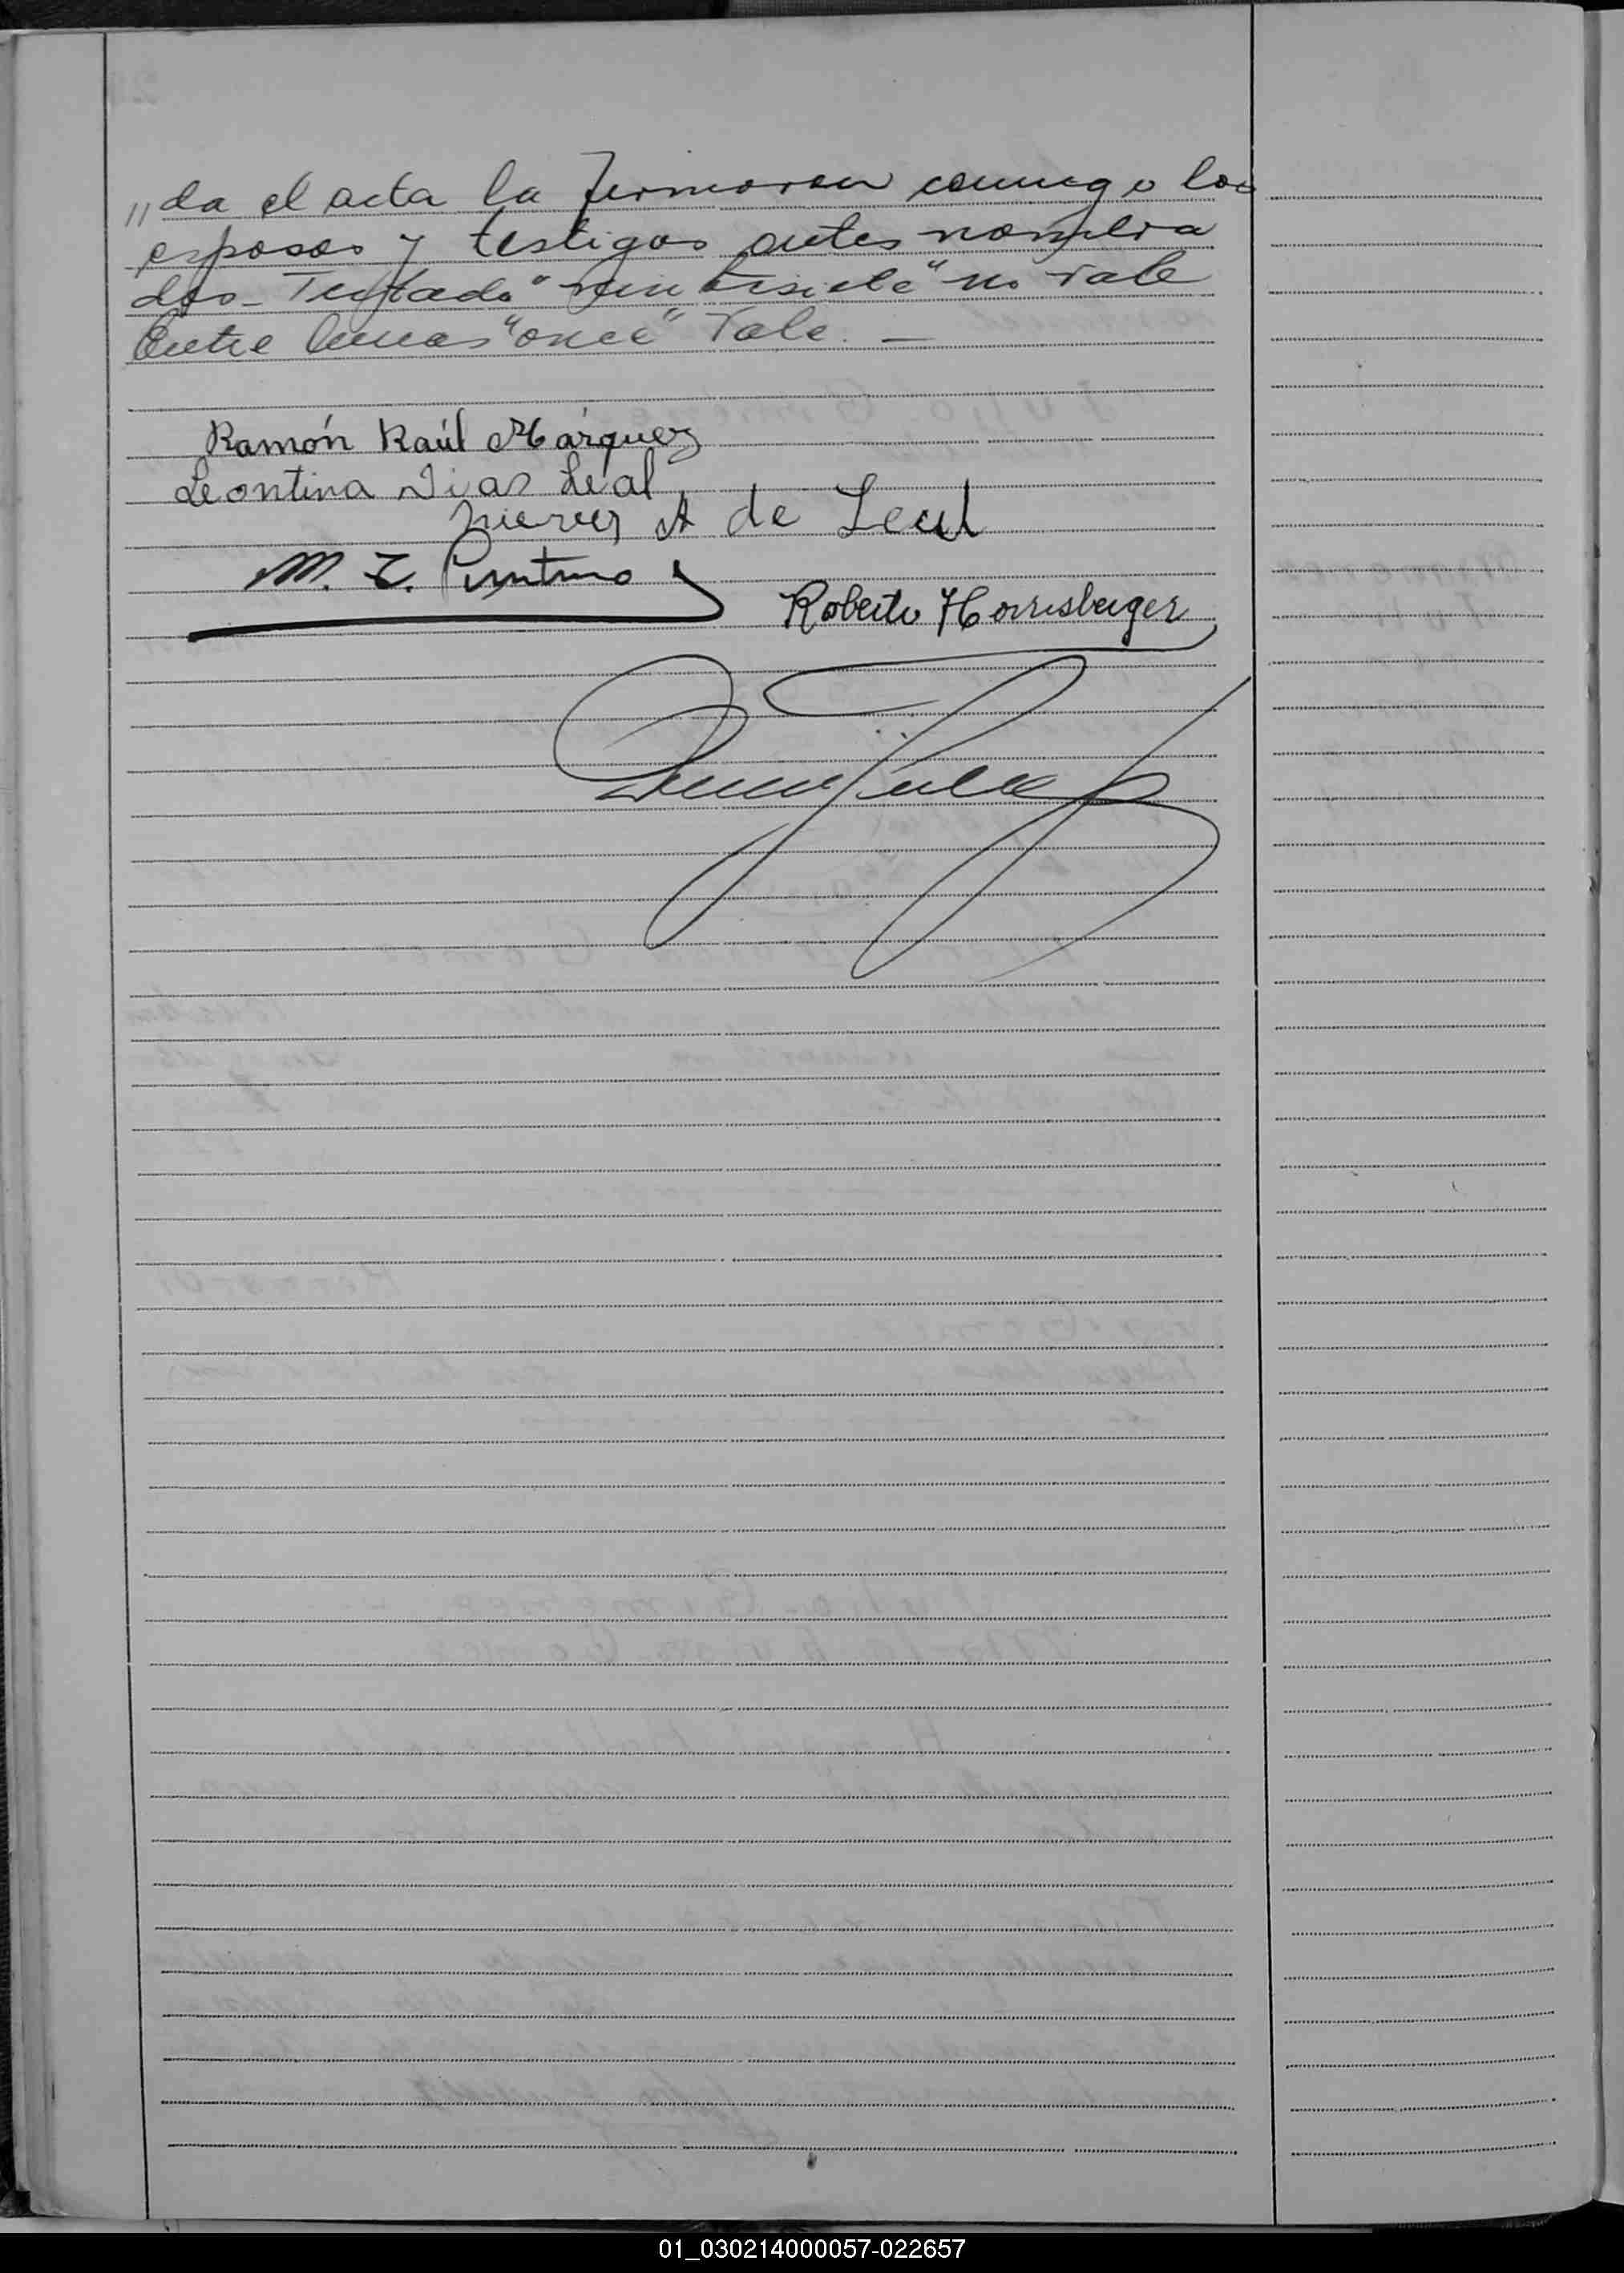 " da el acta la firmaron conmigo los
esposos y testigos antes nombra
dos - Testado "veintisiete" no vale
Entre lineas "once" Vale. —
Ramón Raúl Márquez
Leontina Dias Leal
Nieves A de Leal
M. T.
Roberto Horrisberger
01_030214000057-022657